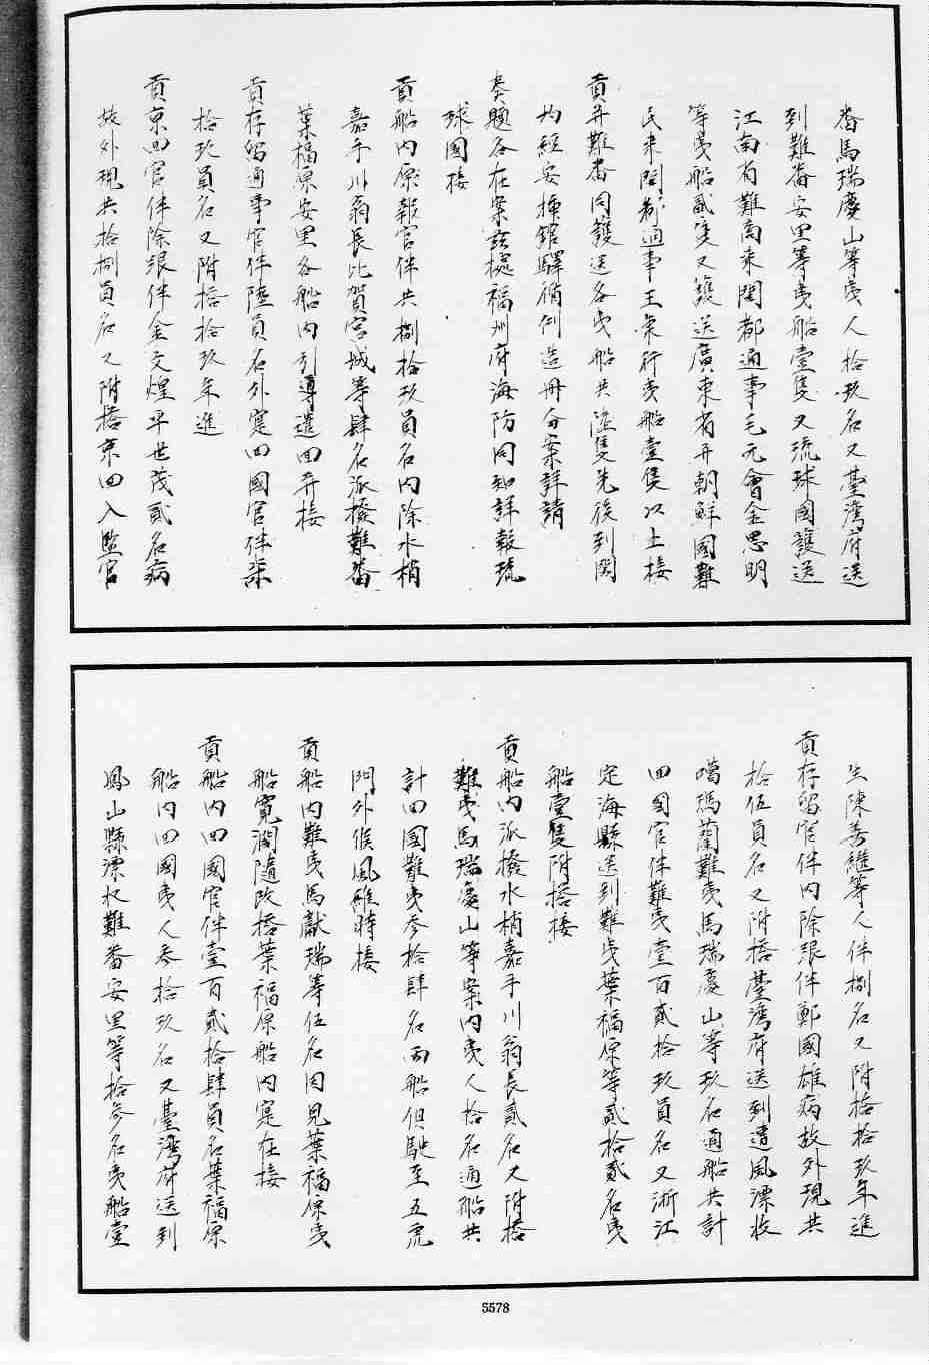 番馬瑞慶山等夷人拾玖名又臺灣府送
到難番安里等夷船壹隻又琉球國護送
江南有難商來閩都通事毛元會金思明
等夷船貳隻又護送廣東省并朝鮮國難
民來閩都通事王秉行夷船壹隻以上接
貢并難番同護送各夷船共陸隻先後到閩
均經安插館驛循例造冊分案詳請
奏題各在案茲據福州府海防同知詳報琉
球國接
貢船內原報官伴共捌拾玖員名內除水梢
嘉手川翁長比賀宮城等肆名派撥難番
葉福原安里各船內引導遣回并接
貢存留通事官伴陸員名外寔回國官伴柒
拾玖員名又附搭拾玖年進
貢京回官伴除跟伴金文煌平世茂貳名病
故外現共拾捌員名又附搭京回入監官
生陳善繼等人伴捌名又附搭拾玖年進
貢存留官伴內除跟伴鄭國雄病故外現共
拾伍員名又附搭臺灣府送到遭風漂收
噶瑪蘭難夷馬瑞慶山等玖名通船共計
回國官伴難夷壹百貳拾玖員名又浙江
定海縣送到難夷葉福原等貳拾貳名夷
船壹隻附搭接
貢船內派撥水梢嘉手川翁長貳名又附搭
難夷馬瑞慶山等案內夷人拾名通船共
計回國難夷參拾肆名兩船但駛至五虎
門外候風維時接
貢船內難夷馬獻瑞等伍名因見葉福原夷
船寬濶隨改搭葉福原船內寔在接
貢船內回國官伴壹百貳拾肆員名葉福原
船內回國夷人參拾玖名又臺灣府送到
鳳山縣漂收難番安里等拾參名夷船壹
5578